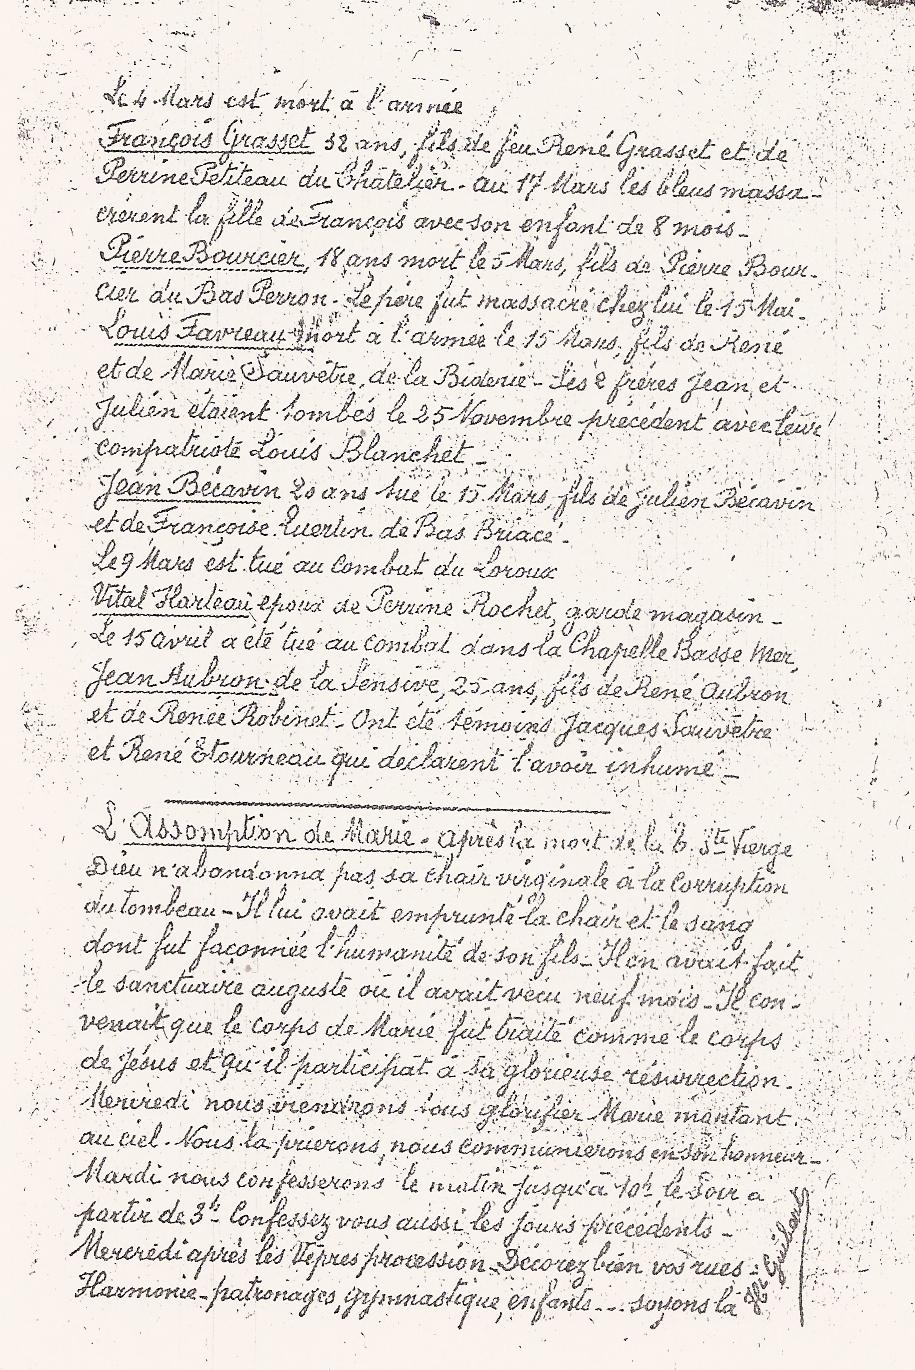 Le 4 Mars est mort à l'armée
François Grasset 32 ans, fils de feu René Grasset et de
Perrine Petiteau du Châtelier - au 17 Mars les bleus massa-
crèrent la fille de François avec son enfant de 8 mois -
Pierre Bourcier, 18 ans mort le 5 Mars, fils de Pierre Bour-
cier du Bas Perron - Le père fut massacré chez lui le 15 Mai -
Louis Favreau mort à l'armée le 15 Mars fils de René
et de Marie Sauvêtre, de la Biderie - Ses 2 frères Jean et
Julien étaient tombés le 25 Novembre précédent avec leur
compatriote Louis Blanchet -
Jean Bécavin 20 ans tué le 15 Mars, fils de Julien Bécavin
et de Françoise Luertin de Bas Briacé -
Le 9 Mars est tué au combat du Loroux
Vital Harteau époux de Perrine Rochet, garde magasin -
Le 15 avril a été tué au combat dans la Chapelle Basse Mer,
Jean Aubron de la Sensive, 25 ans, fils de René Aubron
et de Renée Robinet - Ont été témoins Jacques Sauvêtre
et René Etourneau qui déclarent l'avoir inhumé -
L'Assomption de Marie - Après la mort de la B. Ste Vierge
Dieu n'abandonna pas sa chair virginale à la corruption
du tombeau - Il lui avait emprunté la chair et le sang
dont fut façonnée l'humanité de son fils - Il en avait fait
le sanctuaire auguste où il avait vécu neuf mois - Il con-
venait que le corps de Marie fut traité comme le corps
de Jésus et qu'il participât à sa glorieuse résurrection -
Mercredi nous viendrons tous glorifier Marie montant
au ciel - Nous la prierons, nous communierons en son honneur -
Mardi nous confesserons le matin jusqu'à 10h le soir à
partir de 3h Confessez vous aussi les jours précédents -
Mercredi après les Vêpres procession - Décorez bien vos rues -
Harmonie - patronages, gymnastique, enfants --- soyons là
Hi Guibert